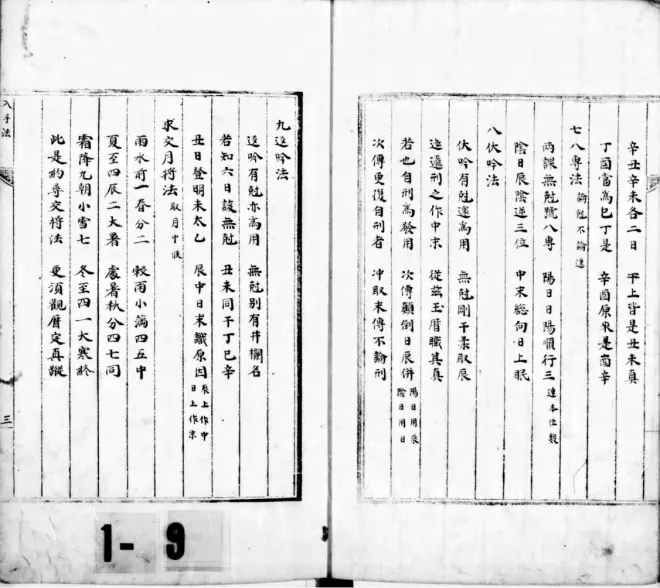 辛丑辛未各二日 干上皆是丑未真
丁酉當為己丁是 辛酉原來是酉辛
七八專法 論尅不論遥
兩課無尅號八專 陽日日陽順行三 連本位數
陰日辰陰逆三位 中末總向日上眠
八伏吟法
伏吟有尅還為用 無尅剛干柔取辰
迤邐刑之作中末 從兹玉曆職其真
若也自刑為發用 次傳顛倒日辰併 陽日用辰 陰日用日
次傳更復自刑者 冲取末傳不論刑
九返吟法
返吟有尅亦為用 無尅别有井欄名
若知六日該無尅 丑未同干丁己辛
丑日登明未太乙 辰中日末識原因 辰上作中 日上作末
求交月將法 取月中氣
雨水前一春分二 穀雨小滿四五中
夏至四辰二大暑 處暑秋分四七同
霜降九朝小雪七 冬至四一大寒終
此是約尋交將法 更須觀曆定真蹤
入手法
三
1- 9